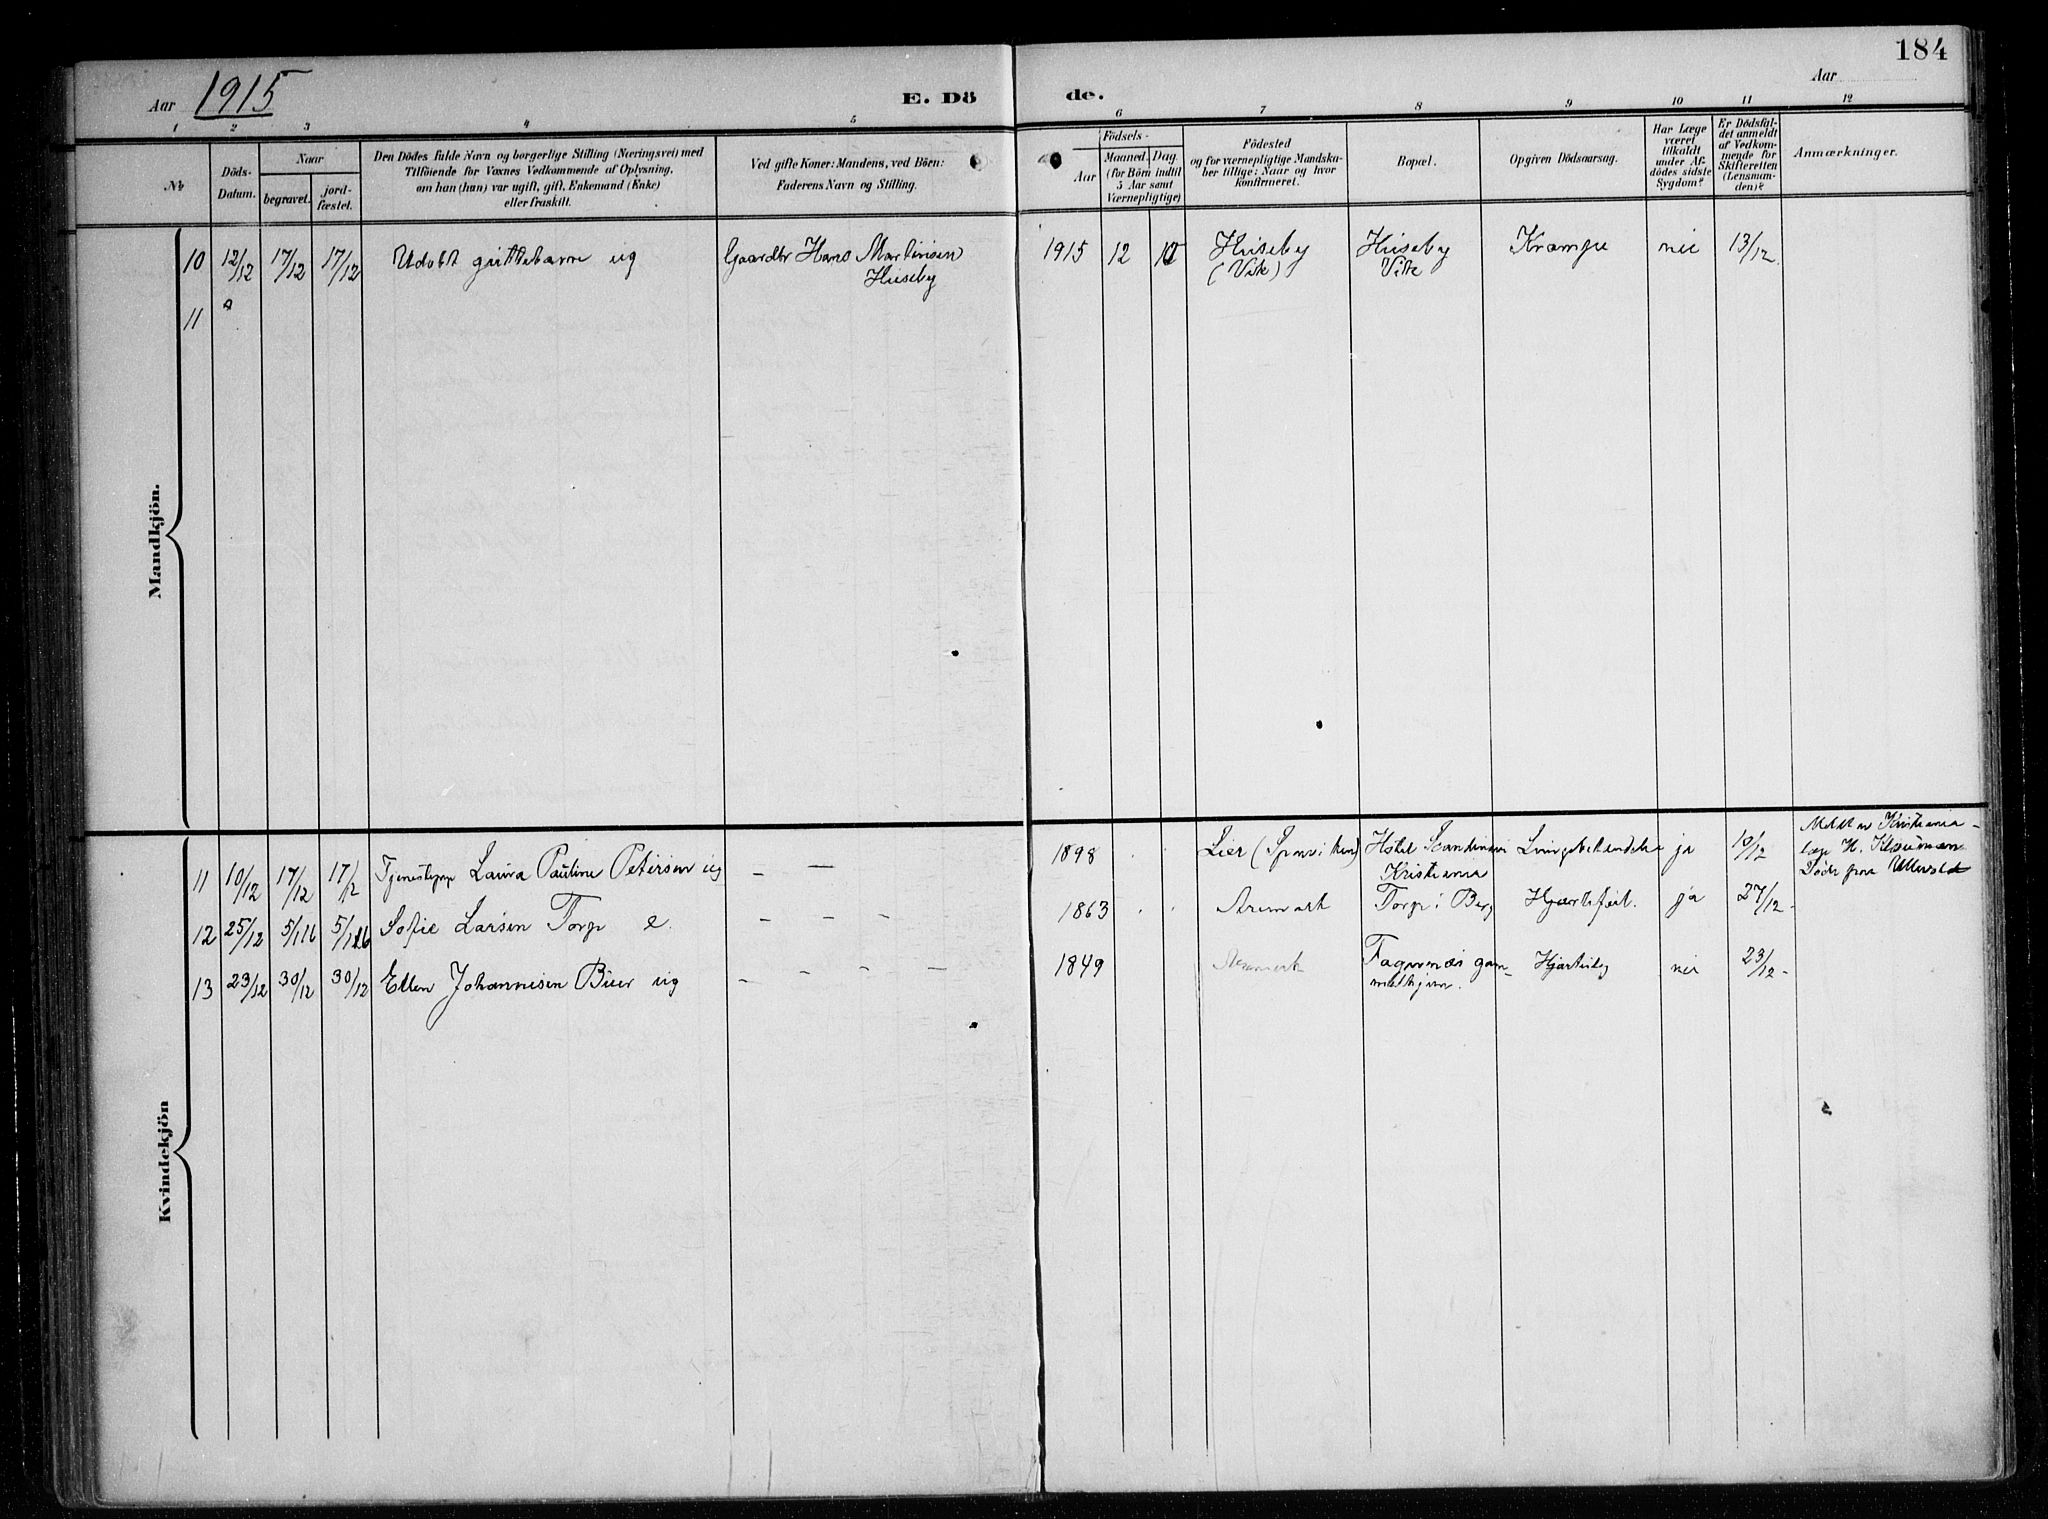 184
Aar 1915
E. Dö
de.
Aar
1 2 3 4 5 6 7 8 9 10 11 12
No
Döds-
Datum.
Naar
begravet.
jord-
fæstet.
Den Dödes fulde Navn og borgerlige Stilling (Næringsvei) med
Tilföiende for Voxnes Vedkommende af Oplysning,
om han (hun) var ugift, gift, Enkemand (Enke)
eller fraskilt.
Ved gifte Koner: Mandens, ved Börn:
Faderens Navn og Stilling.
Födsels-
Aar
Maaned. Dag.
(for Börn indtil
5 Aar samt
Værnepligtige)
Födested
og for værnepligtige Mandska-
ber tillige: Naar og hvor
konfirmeret.
Bopæl.
Opgiven Dödsaarsag.
Har Læge
været
tilkaldt
under Af-
dödes sidste
Sygdom?
Er Dödsfal-
det anmeldt
af Vedkom-
mende for
Skifteretten
(Lensman-
den)?
Anmærkninger.
Mandkjön.
10 12/12 17/12 17/12 Udöbt guttebarn ug Gaardbr Hans Martinsen
Huseby
1915 12 Huseby
(Visk)
Huseby
Visk
Krampe nei 13/12
11
Kvindekjön
11 10/12 17/12 17/12 Tjenestepige Laura Pauline Petersen ug — —
1898 Lier Hotel Scandinavi
Kristiania
ja
Kristiania
12 25/12 5/1 16 5/1 16 Sofie Larsen Torp e. — — —
1863 Aremark Torp i Berg Hjertefeil. ja 27/12
13 23/12 30/12 30/12 Ellen Johannesen Buer ug — — — —
1849 Aremark Fagernæs gam-
melhjem.
nei 23/12